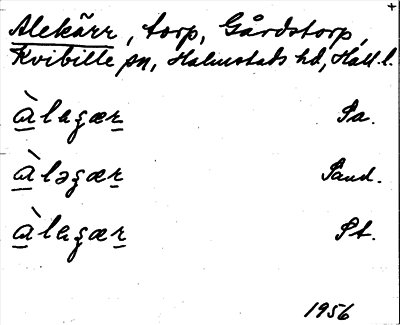 Alekärr, torp, Gårdstorp,
Kvibille sn, Halmstads hd, Hall. l.
àlaʒær Sa.
àləʒær Sand.
àlaʒær St.
1956